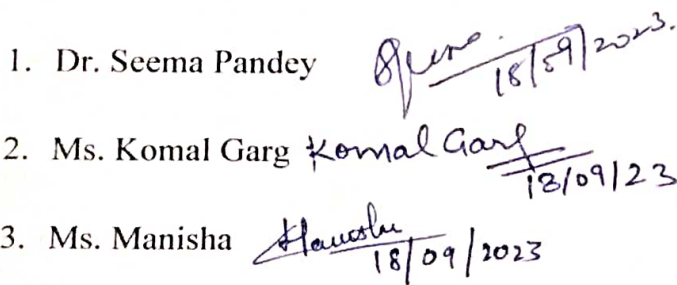 1. Dr. Seema Pandey
18/09/2023.
2. Ms. Komal Garg Komal Garg
18/09/23
3. Ms. Manisha
18/09/2023